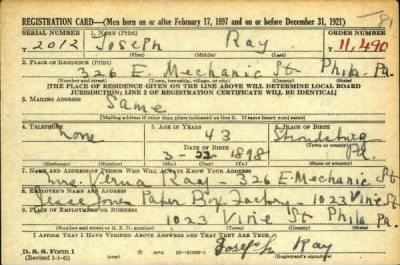 REGISTRATION CARD—(Men born on or after February 17, 1897 and on or before December 31, 1921)
SERIAL NUMBER 1. NAME (Print) ORDER NUMBER
2012 Joseph Ray 11,490
(First) (Middle) (Last)
2. PLACE OF RESIDENCE (Print)
326 E. Mechanic St Phila Pa.
(Number and street) (Town, township, village, or city) (County) (State)
[THE PLACE OF RESIDENCE GIVEN ON THE LINE ABOVE WILL DETERMINE LOCAL BOARD
JURISDICTION; LINE 2 OF REGISTRATION CERTIFICATE WILL BE IDENTICAL]
3. MAILING ADDRESS
Same
(Mailing address if other than place indicated on line 2. If same insert word same)
4. TELEPHONE 5. AGE IN YEARS 6. PLACE OF BIRTH
None 43 Stroudsburg
DATE OF BIRTH (Town or county)
1898 Pa.
(Exchange) (Number) (Mo.) (Day) (Yr.) (State or country)
7. NAME AND ADDRESS OF PERSON WHO WILL ALWAYS KNOW YOUR ADDRESS
Mrs. Verna Ray - 326 E. Mechanic St
8. EMPLOYER'S NAME AND ADDRESS
Jesse Jones Paper Box Factory - 1023 Vine St
9. PLACE OF EMPLOYMENT OR BUSINESS
1023 Vine St Phila Pa
(Number and street or R. F. D. number) (Town) (County) (State)
I AFFIRM THAT I HAVE VERIFIED ABOVE ANSWERS AND THAT THEY ARE TRUE.
D. S. S. Form 1
(Revised 1-1-42) Joseph Ray
(Registrant's signature)